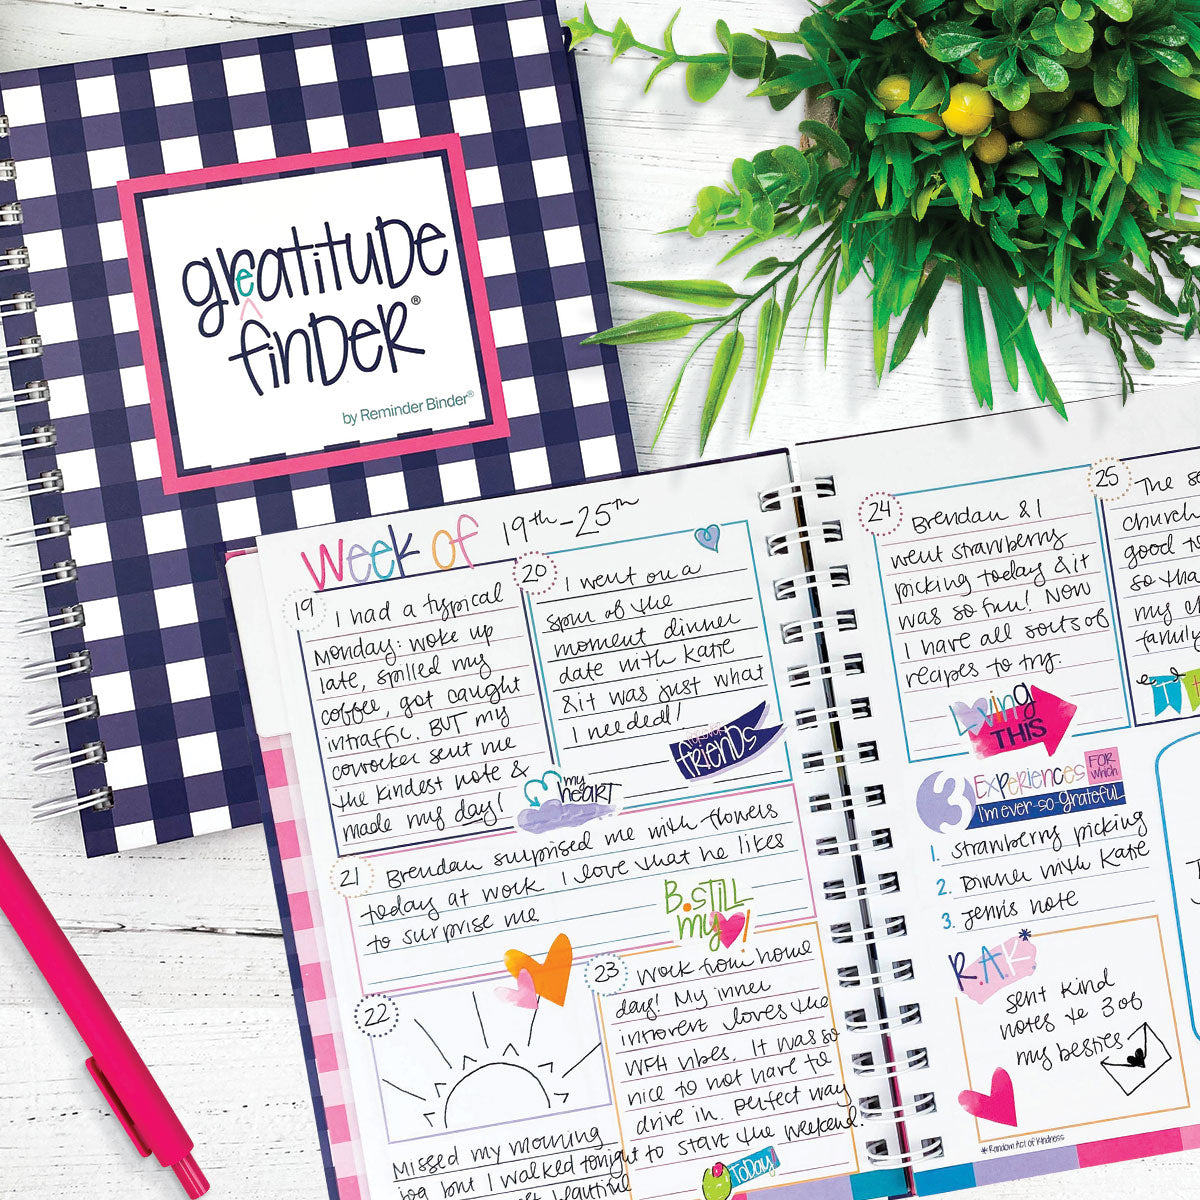 greatitude
finder®
by Reminder Binder®
Week of 19th-25th
19
I had a typical
Monday: woke up
late, spilled my
coffee, got caught
in traffic. BUT my
coworker sent me
the kindest note &
made my day!
my
heart
20
I went on a
spur of the
moment dinner
date with Katie
& it was just what
I needed!
friends
21
Brendan surprised me with flowers
today at work. I love that he likes
to surprise me
B.Still
my !
22
Missed my morning
jog but I walked tonight
beautiful
23
Work from home
day! My inner
introvert loves the
WFH vibes. It was so
nice to not have to
drive in. Perfect way
to start the weekend!
Today!
24
Brendan & I
went strawberry
picking today & it
was so fun! Now
I have all sorts of
recipes to try.
Loving
this
25
The
church
good
so tha
my
family
3 Experiences for which
I'm ever-so-grateful
1. strawberry picking
2. Dinner with Katie
3. Jenn's note
R.A.K*
Sent kind
notes to 3 of
my besties
*Random Act of Kindness